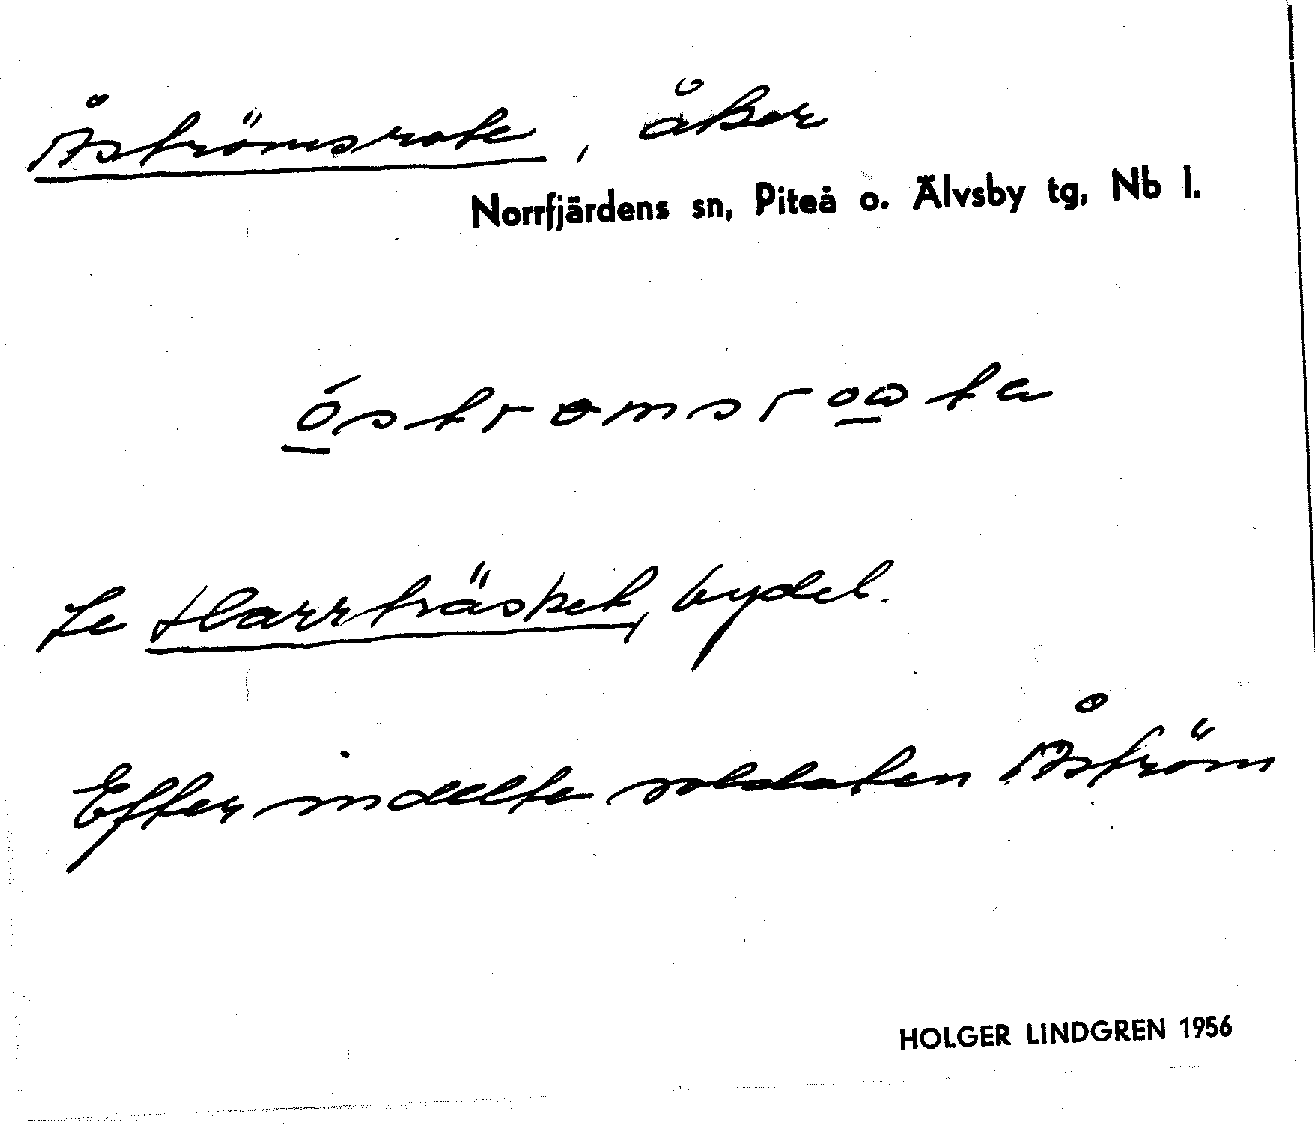 Åströmsrote, åker
Norrfjärdens sn, Piteå o. Älvsby tg, Nb l.
ó̱stromsroo̱ta
Se Harrträsket, bydel.
Efter indelte soldaten Åström
HOLGER LINDGREN 1956